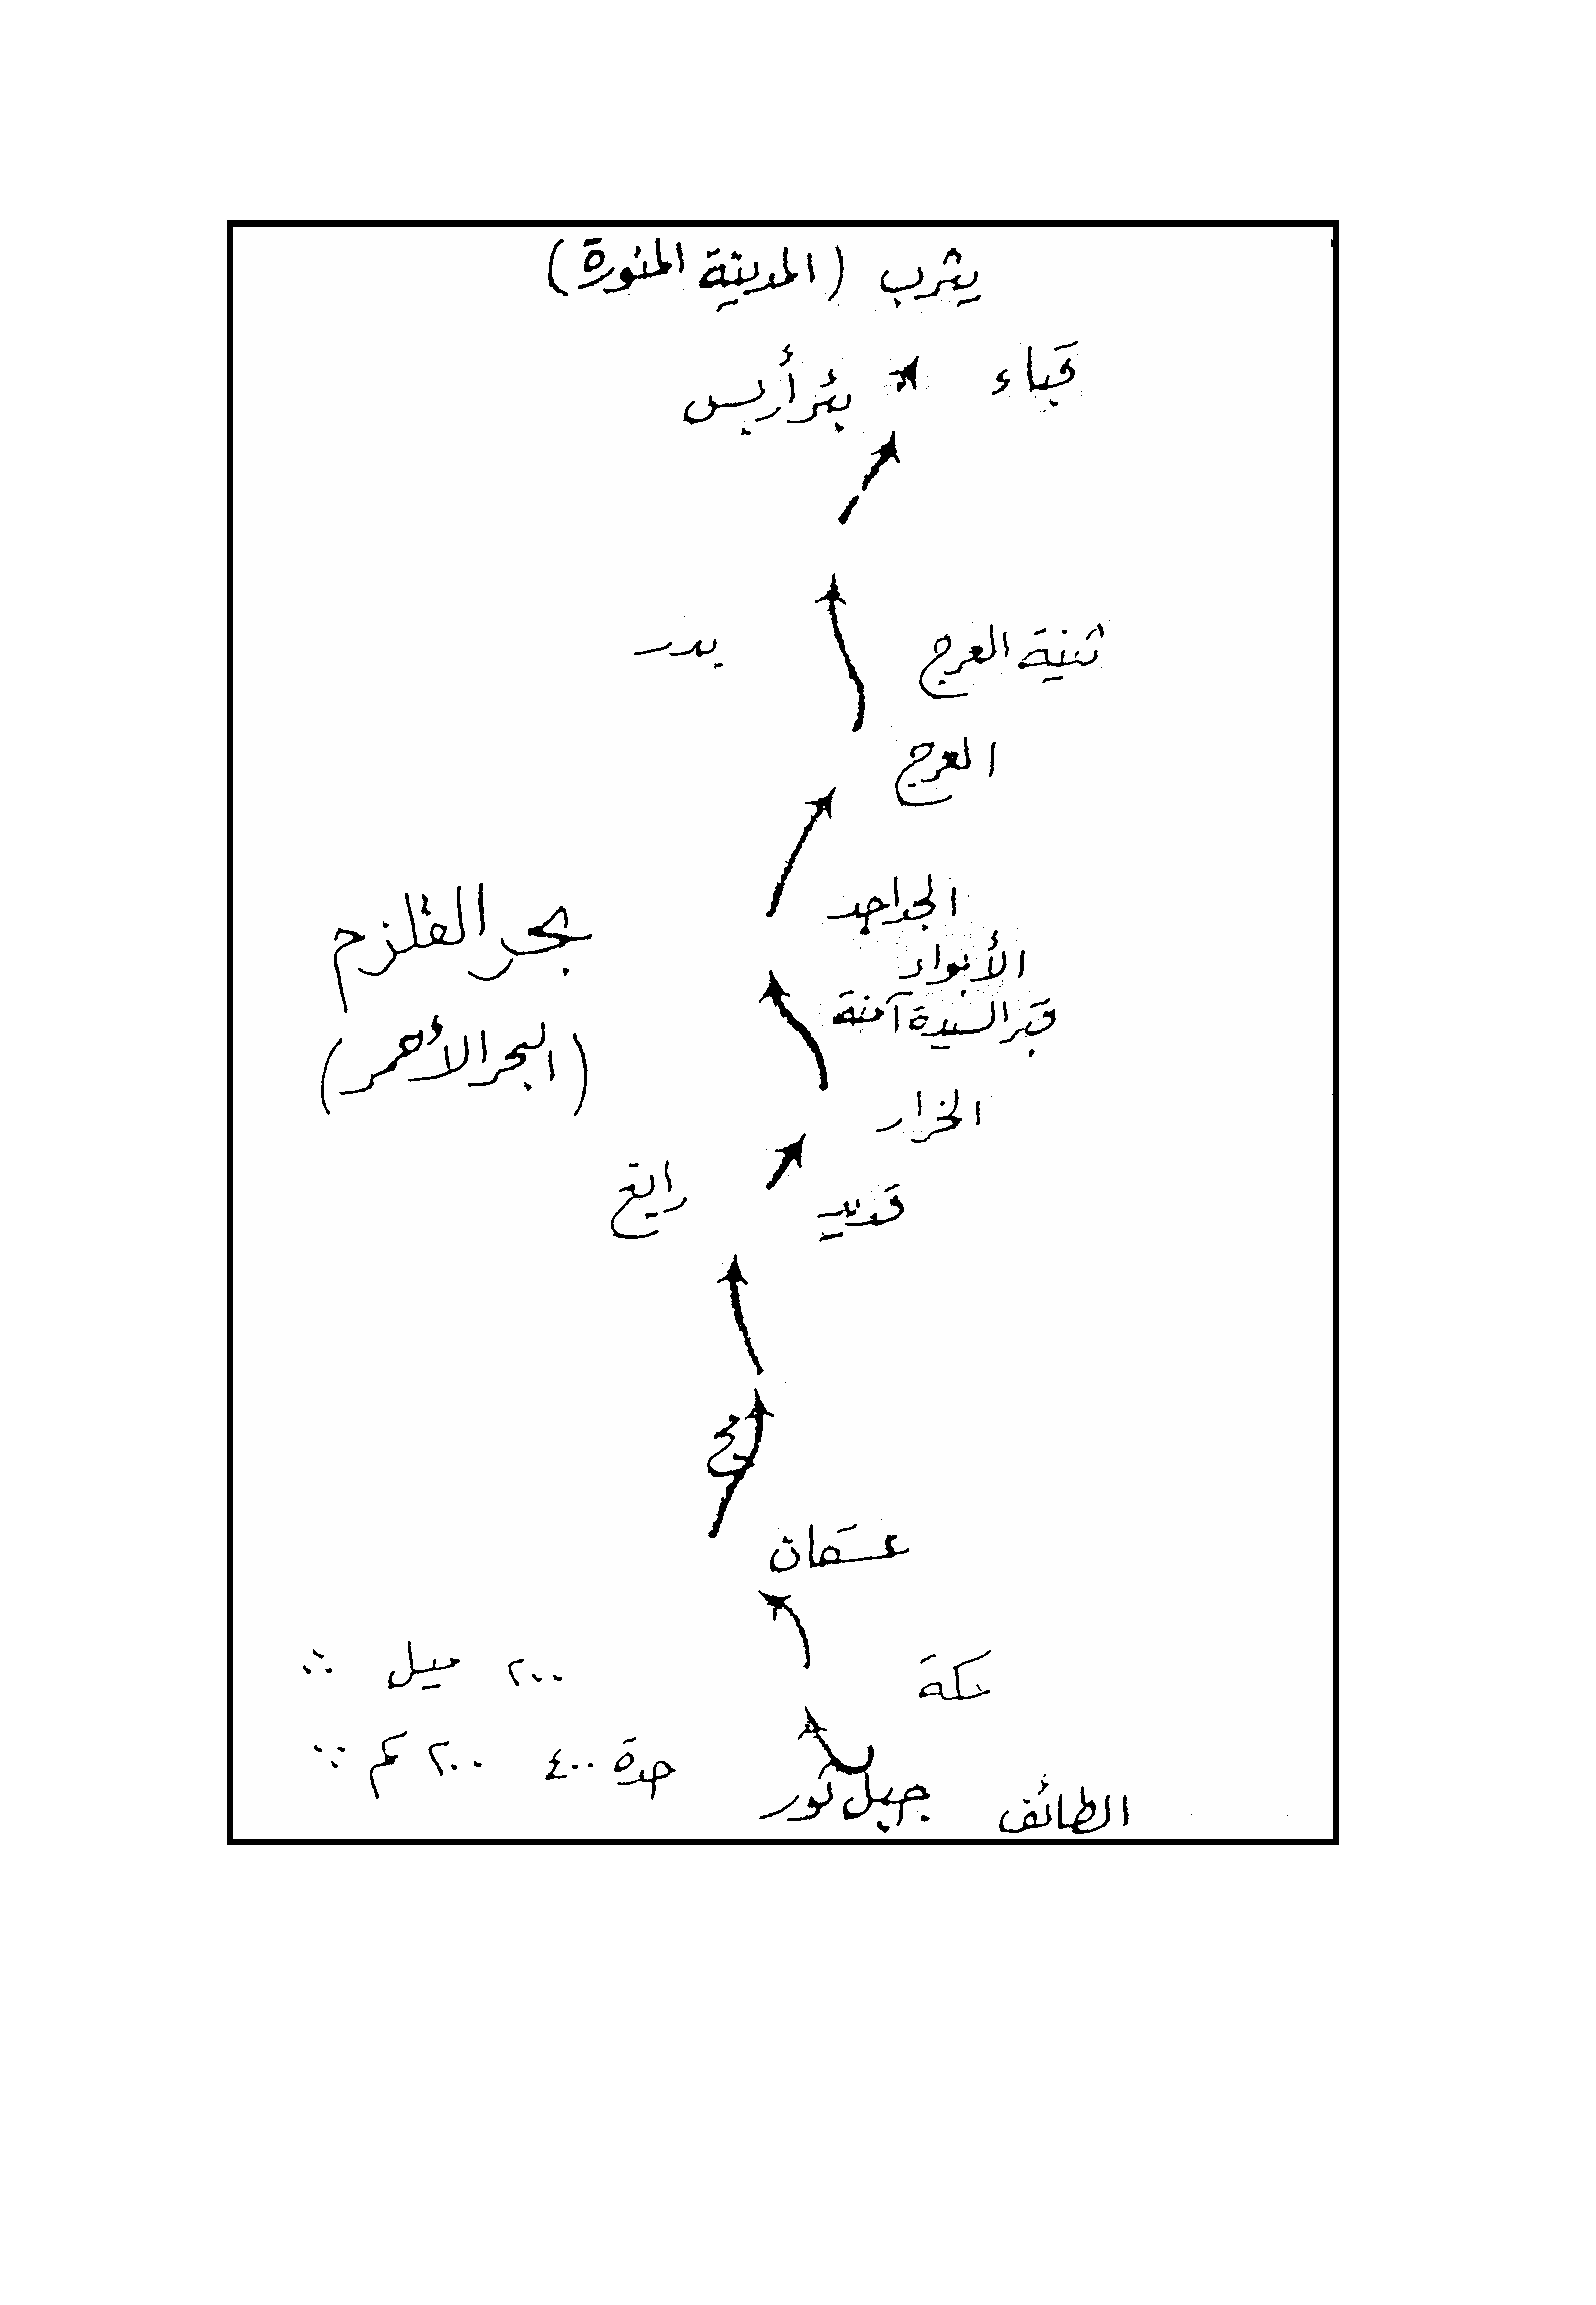 يثرب (المدينة المنورة)
قباء
بئر أريس
ثنية العرج
بدر
العرج
الجداجد
بحر القلزم
الأبواء
قبر السيدة آمنة
(البحر الأحمر)
الخرار
رابغ
قديد
عسفان
مكة
٢٠٠ ميل
جدة ٤٠٠ ٢٠٠ كم
جبل ثور
الطائف